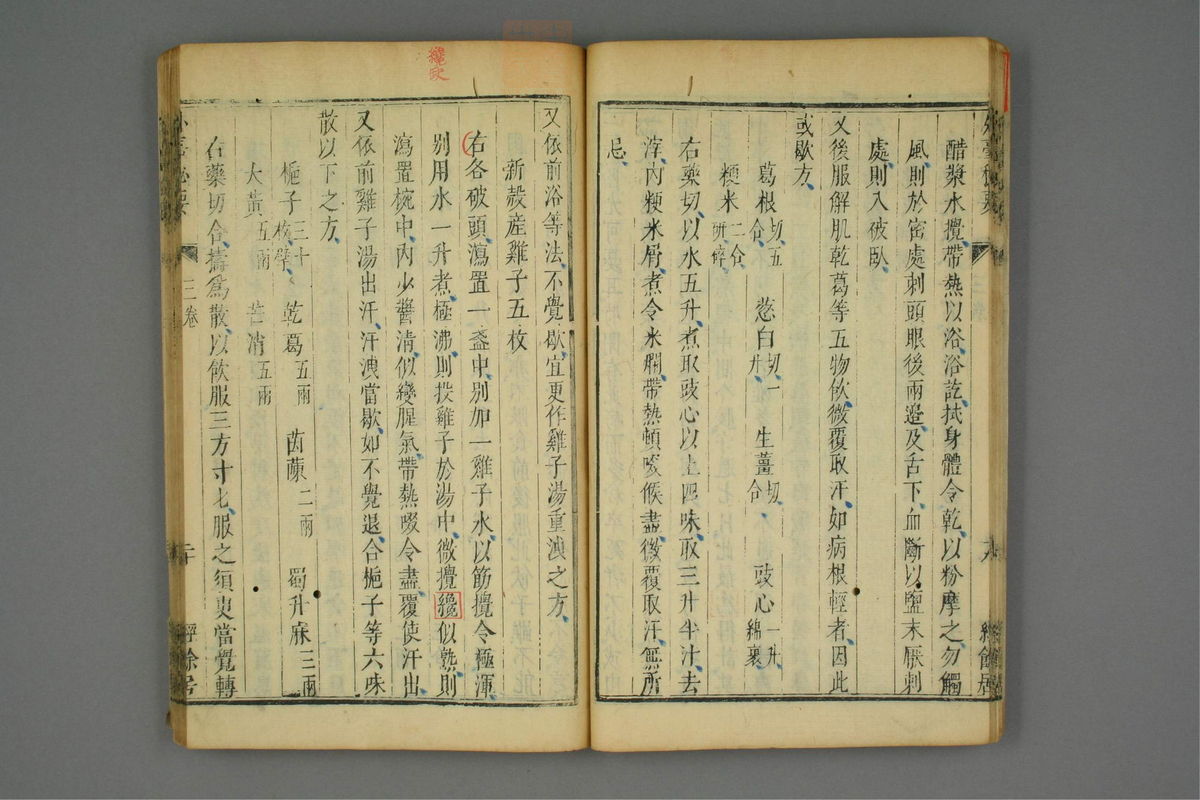 醋漿水攪帶熱以浴浴訖拭身體令乾以粉摩之勿觸
風則於密處刺頭眼後兩邉及舌下血斷以鹽末厭刺
處則入破臥
又後服解肌乾葛等五物飲微覆取汗如病根輕者因此
或歇方
葛根切五合 蔥白切一升 生薑切合 豉心一升綿裹
粳米二合研碎
右藥切以水五升煮取豉心以上四味取三升半汁去
滓內粳米屑煮令米爛帶熱頓㕮候盡微覆取汗無所
忌
又依前浴等法不覺歇宜更作雞子湯重洩之方
新殻産雞子五枚
右各破頭瀉置一盞中别加一雞子水以筯攪令極渾
别用水一升煮極沸則投雞子於湯中微攪纔似熟則
瀉置椀中內少醬清似變腥氣帶熱啜令盡覆使汗出
又依前雞子湯出汗汗洩當歇如不覺退合梔子等六味
散以下之方
梔子三十枚擘 乾葛五兩 茵蔯二兩 蜀升麻三兩
大黃五兩 芒消五兩
右藥切合擣爲散以飲服三方寸匕服之須臾當覺轉
三卷
二十
纔欤